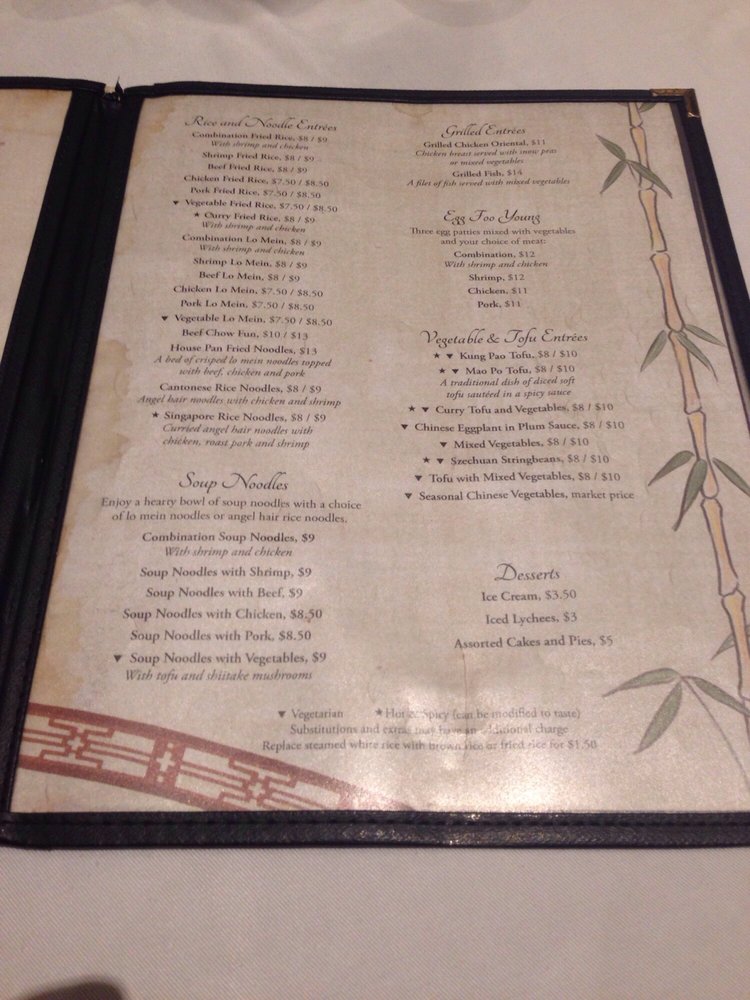 Rice and Noodle Entrées
Combination Fried Rice, $8 / $9
With shrimp and chicken
Shrimp Fried Rice, $8 / $9
Beef Fried Rice, $8 / $9
Chicken Fried Rice, $7.50 / $8.50
Pork Fried Rice, $7.50 / $8.50
▼ Vegetable Fried Rice, $7.50 / $8.50
★ Curry Fried Rice, $8 / $9
With shrimp and chicken
Combination Lo Mein, $8 / $9
With shrimp and chicken
Shrimp Lo Mein, $8 / $9
Beef Lo Mein, $8 / $9
Chicken Lo Mein, $7.50 / $8.50
Pork Lo Mein, $7.50 / $8.50
▼ Vegetable Lo Mein, $7.50 / $8.50
Beef Chow Fun, $10 / $13
House Pan Fried Noodles, $13
A bed of crisped lo mein noodles topped
with beef, chicken and pork
Cantonese Rice Noodles, $8 / $9
Angel hair noodles with chicken and shrimp
★ Singapore Rice Noodles, $8 / $9
Curried angel hair noodles with
chicken, roast pork and shrimp
Soup Noodles
Enjoy a hearty bowl of soup noodles with a choice
of lo mein noodles or angel hair rice noodles.
Combination Soup Noodles, $9
With shrimp and chicken
Soup Noodles with Shrimp, $9
Soup Noodles with Beef, $9
Soup Noodles with Chicken, $8.50
Soup Noodles with Pork, $8.50
▼ Soup Noodles with Vegetables, $9
With tofu and shiitake mushrooms
Grilled Entrées
Grilled Chicken Oriental, $11
Chicken breast served with snow peas
or mixed vegetables
Grilled Fish, $14
A filet of fish served with mixed vegetables
Egg Foo Young
Three egg patties mixed with vegetables
and your choice of meat:
Combination, $12
With shrimp and chicken
Shrimp, $12
Chicken, $11
Pork, $11
Vegetable & Tofu Entrées
★ ▼ Kung Pao Tofu, $8 / $10
★ ▼ Mao Po Tofu, $8 / $10
A traditional dish of diced soft
tofu sautéed in a spicy sauce
★ ▼ Curry Tofu and Vegetables, $8 / $10
▼ Chinese Eggplant in Plum Sauce, $8 / $10
▼ Mixed Vegetables, $8 / $10
★ ▼ Szechuan Stringbeans, $8 / $10
▼ Tofu with Mixed Vegetables, $8 / $10
▼ Seasonal Chinese Vegetables, market price
Desserts
Ice Cream, $3.50
Iced Lychees, $3
Assorted Cakes and Pies, $5
▼ Vegetarian ★ Hot & Spicy (can be modified to taste)
Substitutions and extras may have an additional charge
Replace steamed white rice with brown rice or fried rice for $1.50